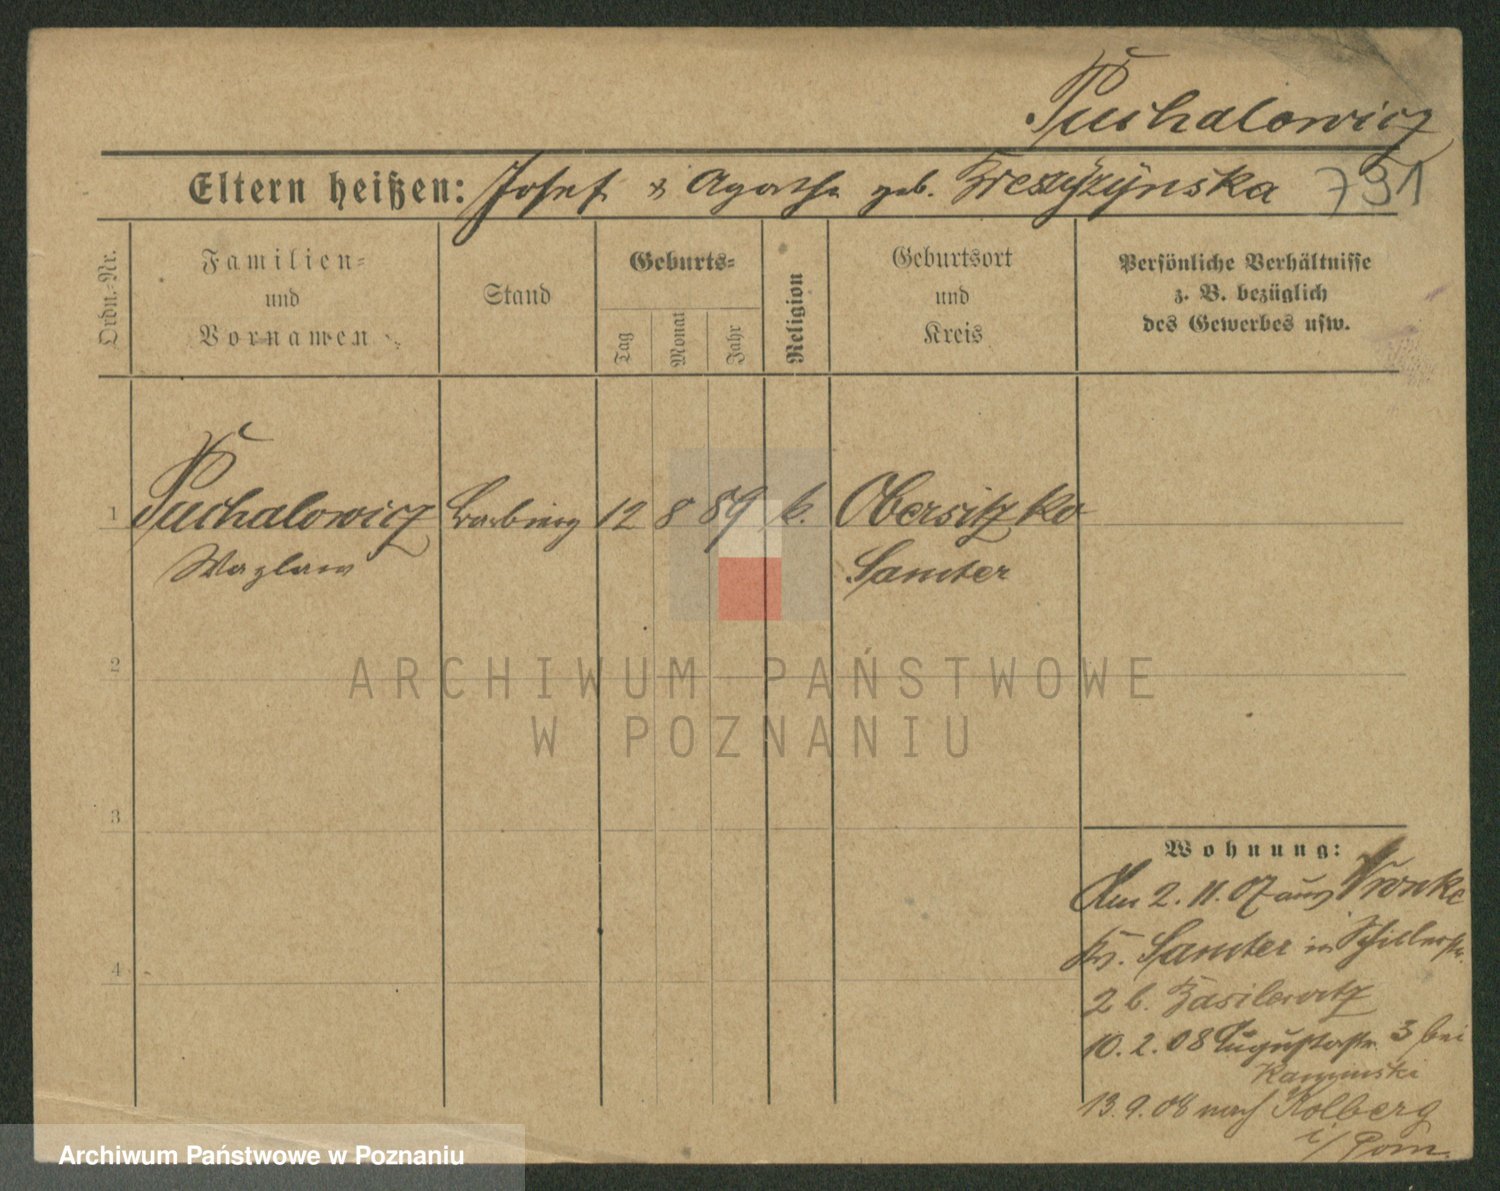 Puchalowicz
Eltern heißen: Josef & Agatha geb.
791
Ordn.-Nr.
Familien-
und
Vornamen
Stand
Geburts-
Tag
Monat
Jahr
Religion
Geburtsort
und
Kreis
Persönliche Verhältnisse
z. B. bezüglich
des Gewerbes usw.
1 Puchalowicz 12 8 89 k. Obersitzko
Wazlaw Samter
2
ARCHIWUM PAŃSTWOWE
W POZNANIU
3
Wohnung:
Am 2. 11. 07 aus Wronke
Kr. Samter in Schillerstr.
2 b. Basilewitz
4
10. 2. 08 Augustastr. 3 bei
Kaminski
13. 9. 08 nach Kolberg
i/Pom.
Archiwum Państwowe w Poznaniu